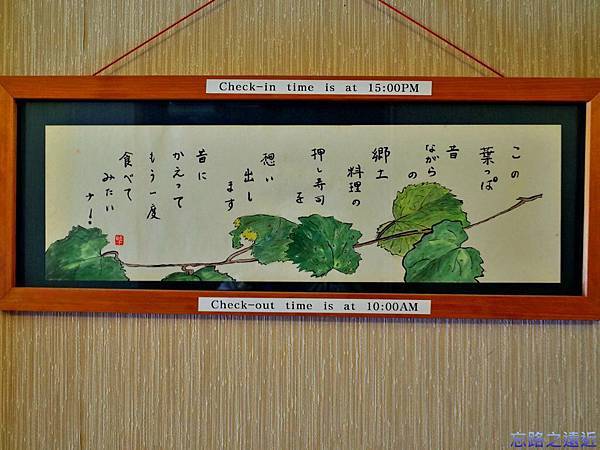 Check-in time is at 15:00PM
この
葉っぱ
昔
ながら
の
郷土
料理の
押し寿司
を
想い
出し
ます
昔に
かえって
もう一度
食べて
みたい
ナー!
Check-out time is at 10:00AM
忘路之遠近